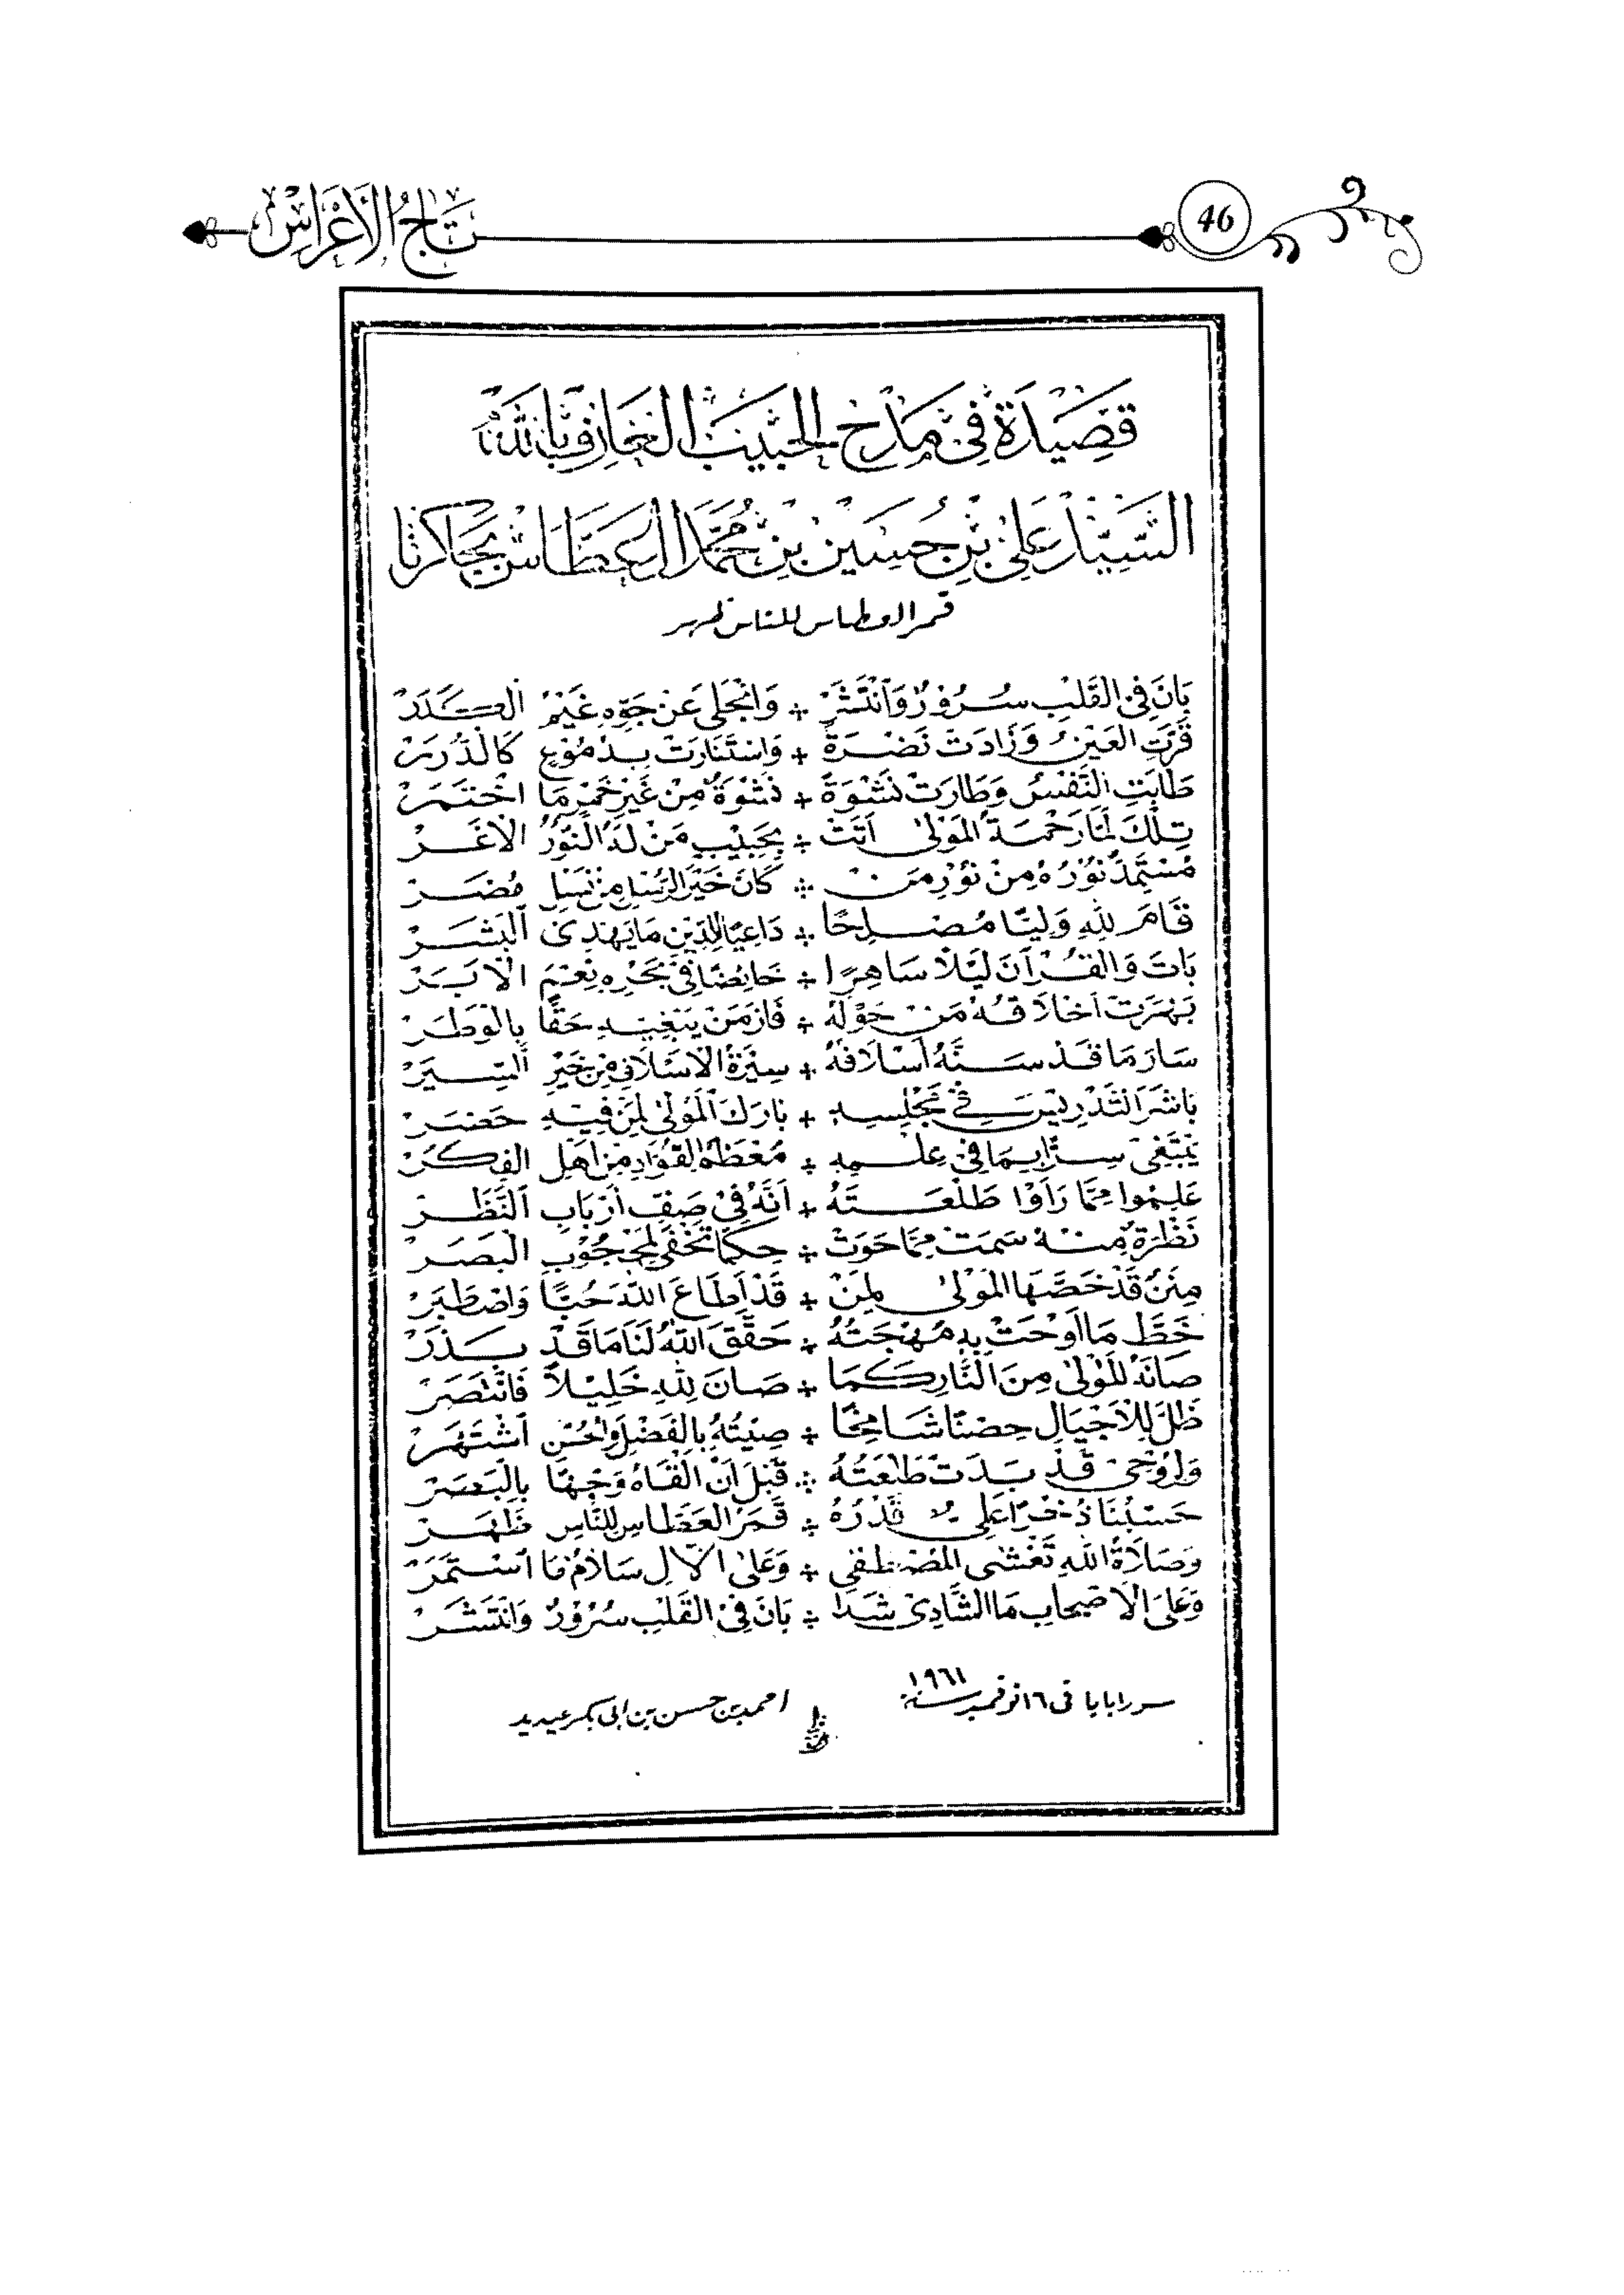 تَاجُ الأَغْرَاسِ
46
قَصِيدَةٌ فِي مَدْحِ الحَبِيبِ العَارِفِ بِاللهِ
السَّيِّد عَلِي بْنِ حُسَيْن بْنِ مُحَمَّد العَطَّاس بِجَاكَرْتَا
قمر العطاس للناس ظهر
بَانَ فِي القَلْبِ سُرُوْرٌ وَانْتَشَرْ + وَانْجَلَى عَنْ جَوِّهِ غَيْمُ الْكَدَرْ
قَرَّتِ العَيْنُ وَزَادَتْ نَضْرَةً + وَاسْتَنَارَتْ بِدُمُوْعٍ كَالدُّرَرْ
طَابَتِ النَّفْسُ وَطَارَتْ نَشْوَةً + نَشْوَةٌ مِنْ غَيْرِ خَمْرٍ مَا اخْتَمَرْ
تِلْكَ لَنَا رَحْمَةُ الْمَوْلَى أَتَتْ + بِحَبِيْبٍ مَنْ لَهُ النُّوْرُ الْأَغَرْ
مُسْتَمَدٌّ نُوْرُهُ مِنْ نُوْرِ مَنْ + كَانَ خَيْرَ الرُّسْلِ مِنْ نَسْلِ مُضَرْ
قَامَ لِلّٰهِ وَلِيًّا مُصْلِحًا + دَاعِيًا لِلدِّيْنِ مَا يَهْدِى الْبَشَرْ
بَاتَ وَالقُرْآنَ لَيْلًا سَاهِرًا + خَائِضًا فِي بَحْرِهِ نِعْمَ الْاَبَرْ
بَهَرَتْ اَخْلَاقُهُ مَنْ حَوْلَهُ + فَازَ مَنْ يَبْغِيْهِ حَقًّا بِالْوَطَرْ
سَارَ مَا قَدْ سَنَّهُ أَسْلَافُهُ + سِيْرَةُ الْاَسْلَافِ مِنْ خَيْرِ السِّيَرْ
بَاشَرَ التَّدْرِيْسَ فِي مَجْلِسِهِ + بَارَكَ الْمَوْلَى لِمَنْ فِيْهِ حَضَرْ
يَبْتَغِى سِرًّا بِمَا فِى عِلْمِهِ + مُعْظَمُ القُوَّادِ مِنْ اَهْلِ الفِكَرْ
عَلِمُوا مِمَّا رَأَوْا طَلْعَتَهُ + اَنَّهُ فِى صَفِّ أَرْبَابِ النَّظَرْ
نَظْرَةٌ مِنْهُ سَمَتْ مِمَّا حَوَتْ + حِكَمًا تَخْفَى لِمَحْجُوْبِ الْبَصَرْ
مِنَنٌ قَدْ خَصَّهَا الْمَوْلَى لِمَنْ + قَدْ اَطَاعَ اللهَ حُبًّا وَاصْطَبَرْ
خَطَّ مَا اَوْحَتْ بِهِ مُهْجَتُهُ + حَقَّقَ اللهُ لَنَا مَا قَدْ بَذَرْ
صَانَهُ الْمَوْلَى مِنَ النَّارِ كَمَا + صَانَ لِلّٰهِ خَلِيْلاً فَانْتَصَرْ
ظَلَّ لِلْأَجْيَالِ حِصْنًا شَامِخًا + صِيْتُهُ بِالفَضْلِ وَالْحُسْنِ اشْتَهَرْ
وَلِرُوْحِىْ قَدْ بَدَتْ طَلْعَتُهُ + قَبْلَ اَنْ اَلْقَاهُ وَجْهًا بِالْبَصَرْ
حَسْبُنَا ذُخْرًا عَلِىٌّ قَدْرُهُ + قَمَرُ العَطَّاسِ لِلنَّاسِ ظَهَرْ
وَصَلَاةُ اللهِ تَغْشَى الْمُصْطَفَى + وَعَلَى الْآلِ سَلَامٌ مَا اسْتَمَرْ
وَعَلَى الْاَصْحَابِ مَا الشَّادِىْ شَدَا + بَانَ فِى القَلْبِ سُرُوْرٌ وَانْتَشَرْ
سورابايا فى ١٦ نوفمبر سنة ١٩٦١
احمد بن حسن بن ابى بكر عيديد